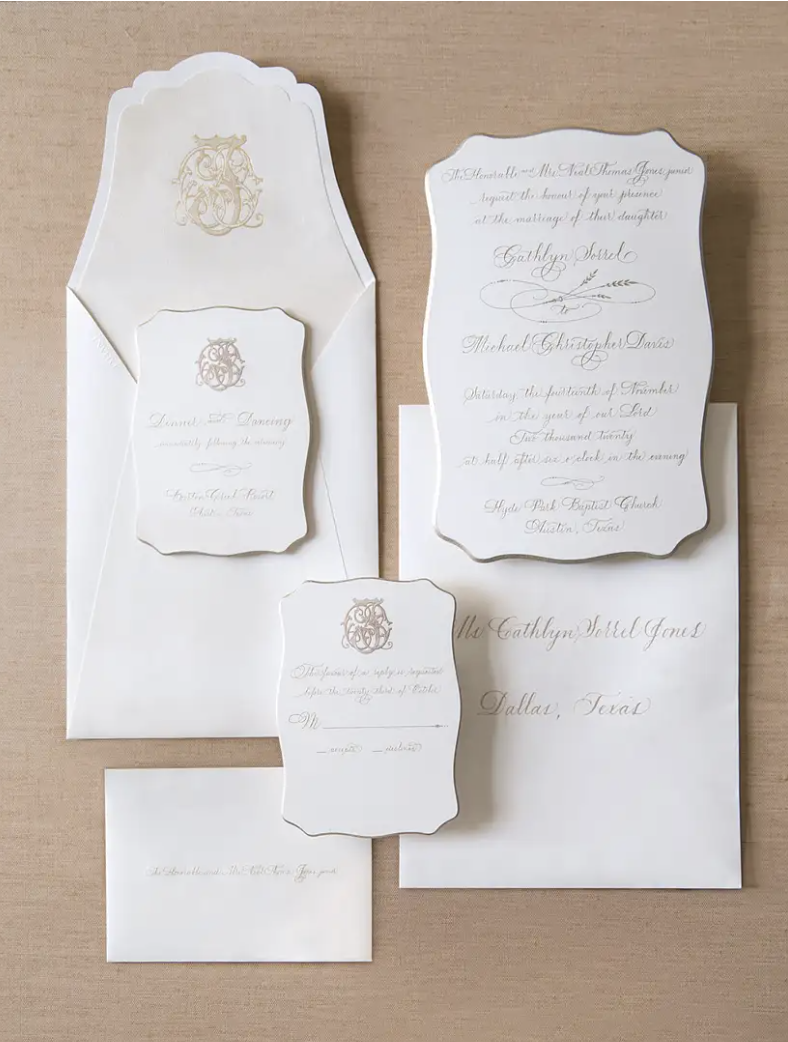 The Honorable and Mrs. Neal Thomas Jones, junior
request the honour of your presence
at the marriage of their daughter
Cathlyn Sorrel
to
Michael Christopher Davis
Saturday the fourteenth of November
in the year of our Lord
Two thousand twenty
at half after six o'clock in the evening
Hyde Park Baptist Church
Austin, Texas
Dinner and Dancing
immediately following the ceremony
Austin, Texas
The favour of a reply is requested
before the twenty third of October
M
accepts declines
Ms Cathlyn Sorrel Jones
Dallas, Texas
The Honorable and Mrs. Neal Thomas Jones, junior